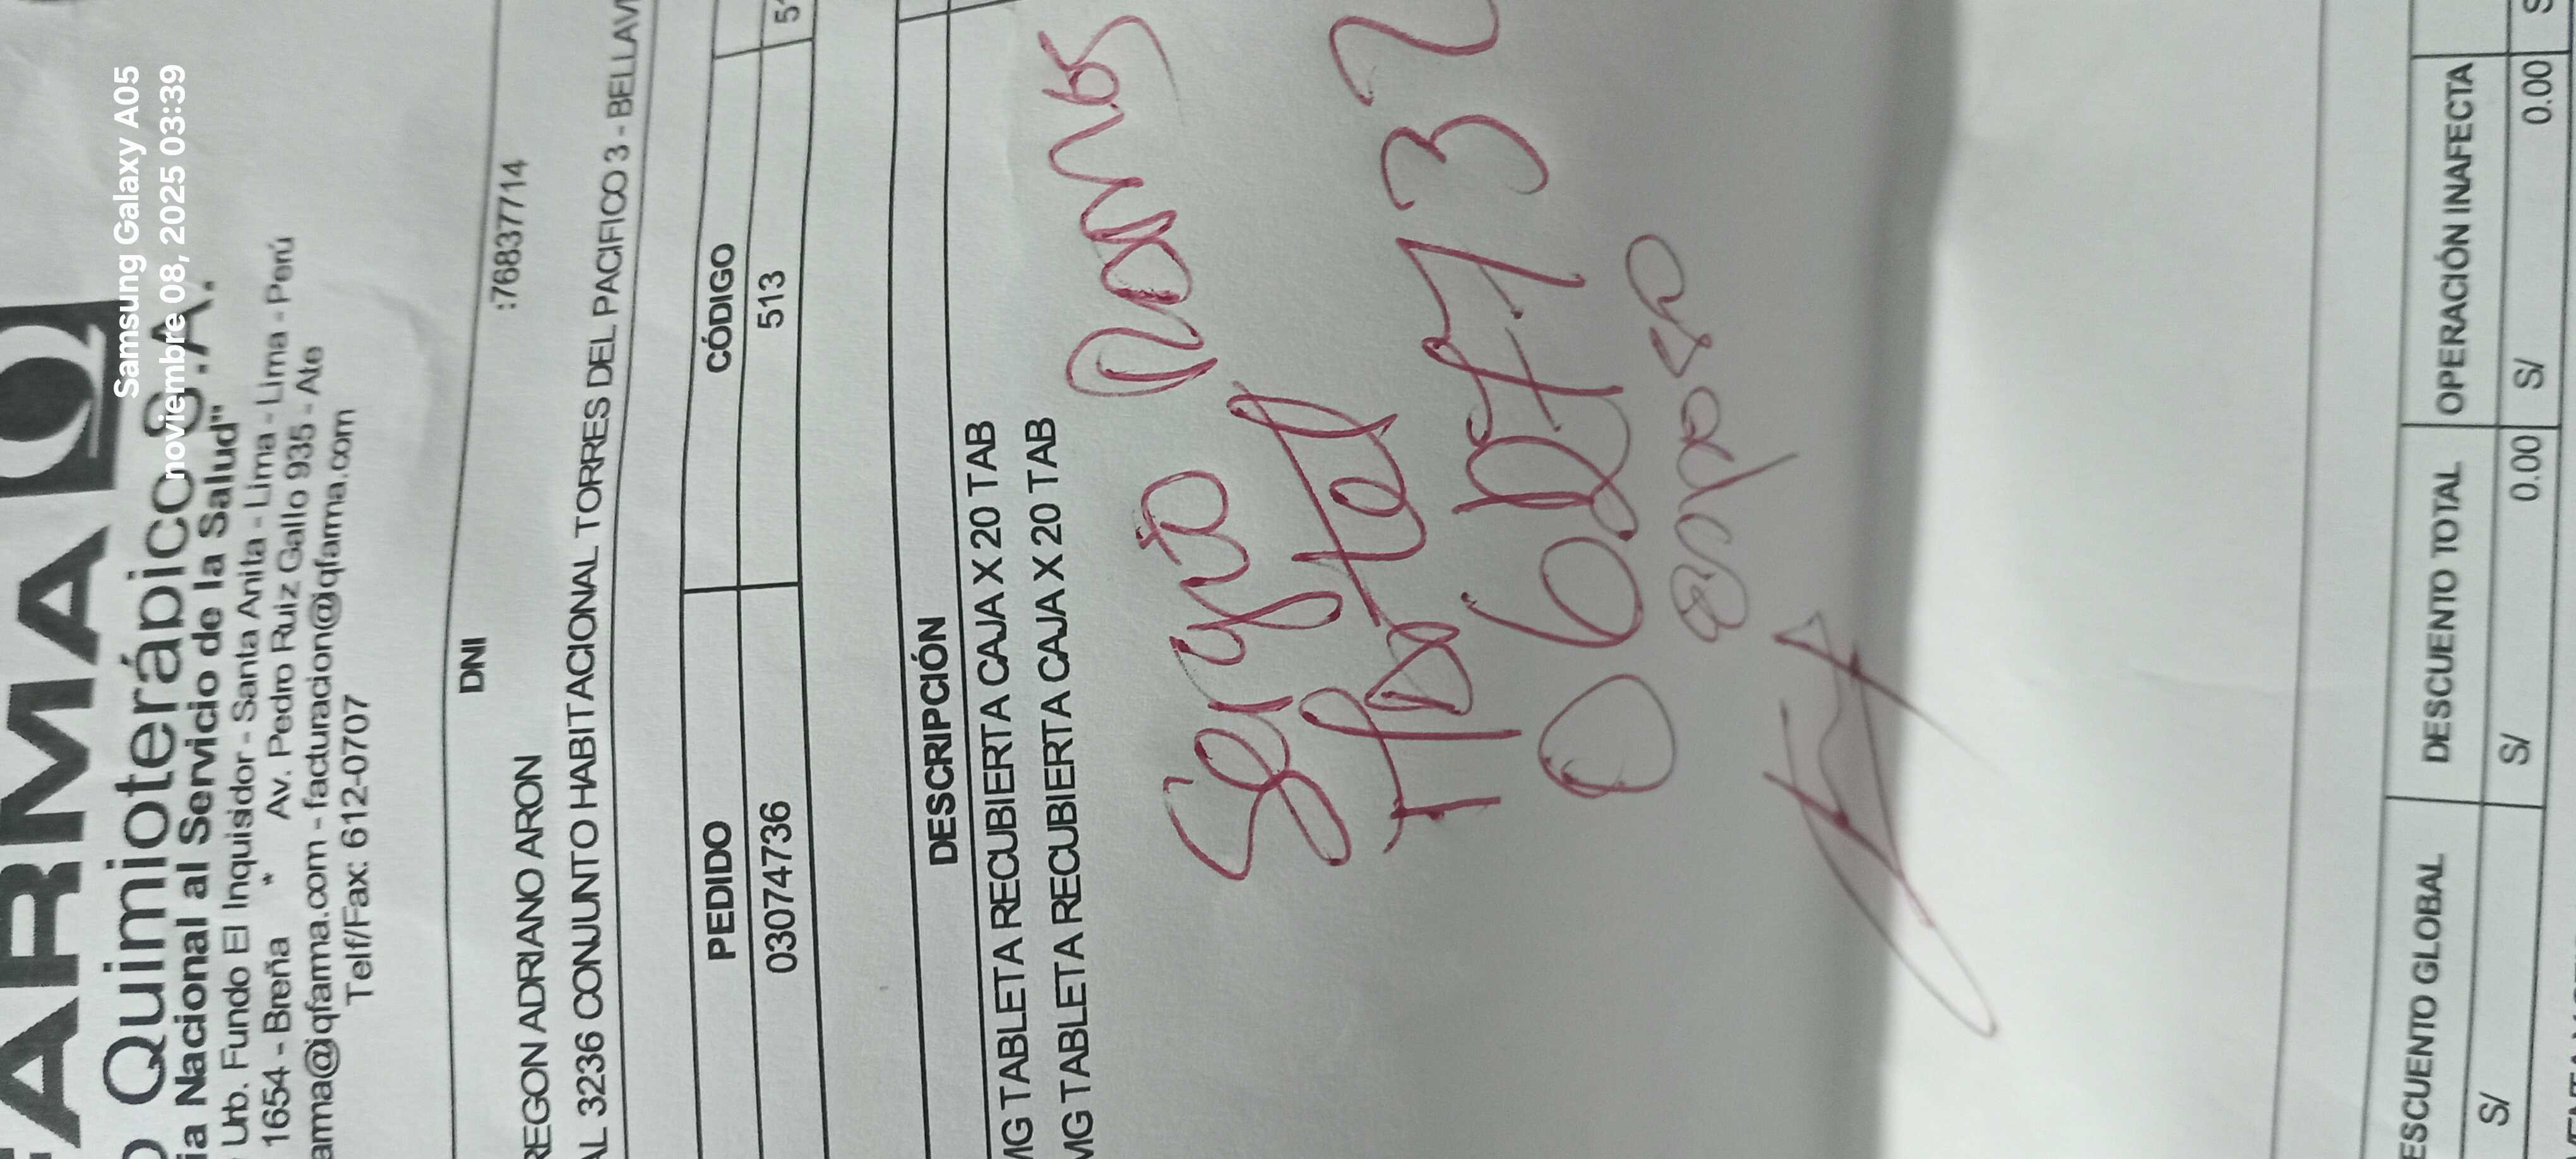 Samsung Galaxy A05
noviembre 08, 2025 03:39
ARMA
Quimioterápico S.A.
ia Nacional al Servicio de la Salud"
Urb. Fundo El Inquisidor - Santa Anita - Lima - Lima - Perú
1654 - Breña * Av. Pedro Ruiz Gallo 935 - Ate
arma@qfarma.com - facturacion@qfarma.com
Telf/Fax: 612-0707
DNI :76837714
REGON ADRIANO ARON
AL 3236 CONJUNTO HABITACIONAL TORRES DEL PACIFICO 3 - BELLAVI
PEDIDO CÓDIGO
03074736 513 51
DESCRIPCIÓN
MG TABLETA RECUBIERTA CAJA X 20 TAB
MG TABLETA RECUBIERTA CAJA X 20 TAB
Sergio Ramos
732
esposo
ESCUENTO GLOBAL DESCUENTO TOTAL OPERACIÓN INAFECTA
S/ S/ 0.00 S/ 0.00 S